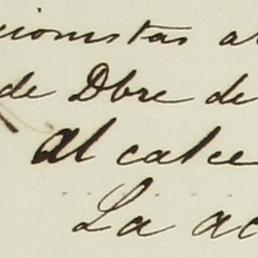 cionistas a
de Dbre de
al calce
La ac